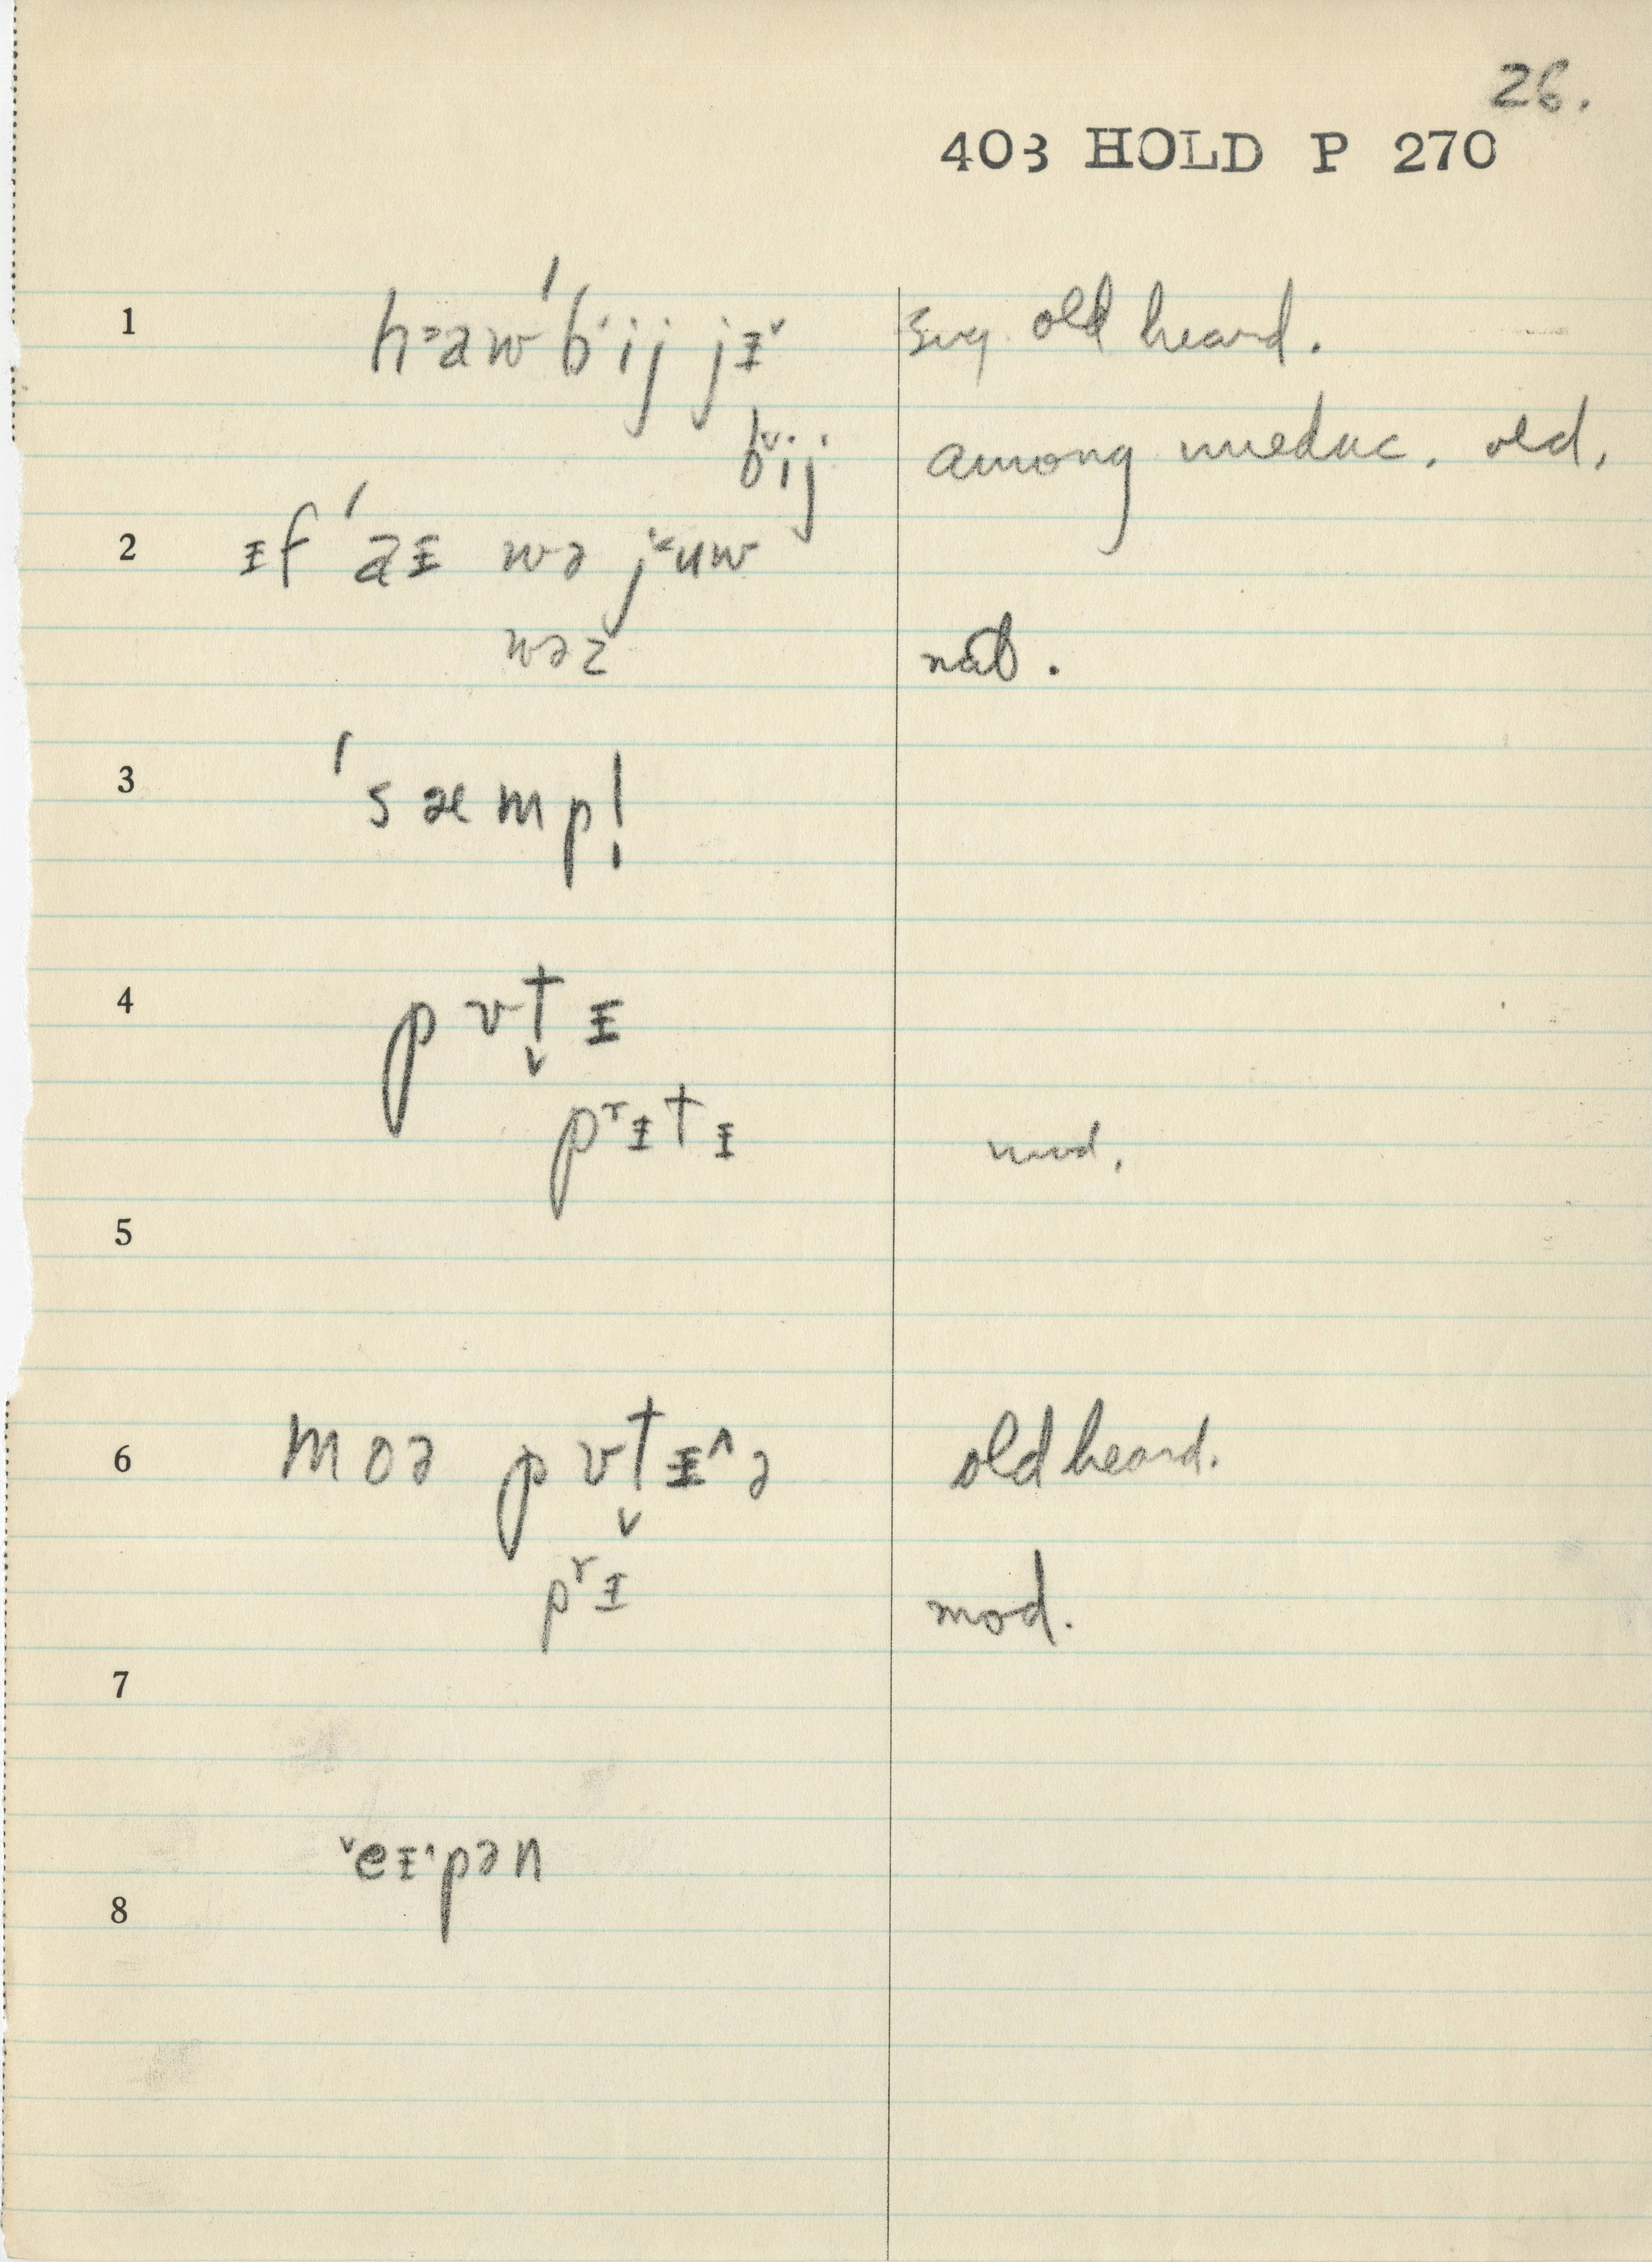 26.
403 HOLD P 270
1 h˃aw ˈbˈij jɪ˅ sug. old heard.
b˅ij among uneduc. old.
2 ɪf ˈaɪ wə j˂uw
wəz nat.
3 ˈsæmp!
4 pʊt̬ɪ
pʳɪtɪ mod.
5
6 moə pʊt̬ɪ^ə old heard.
pʳɪ mod.
7
˅eɪ^pən
8